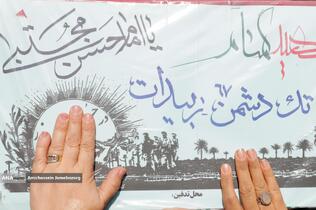 شهید گمنام
یا امام حسن مجتبی
تک دشمن ۶۷ زبیدات
محل تدفین:
ANA
Amirhossein Jomebozorg